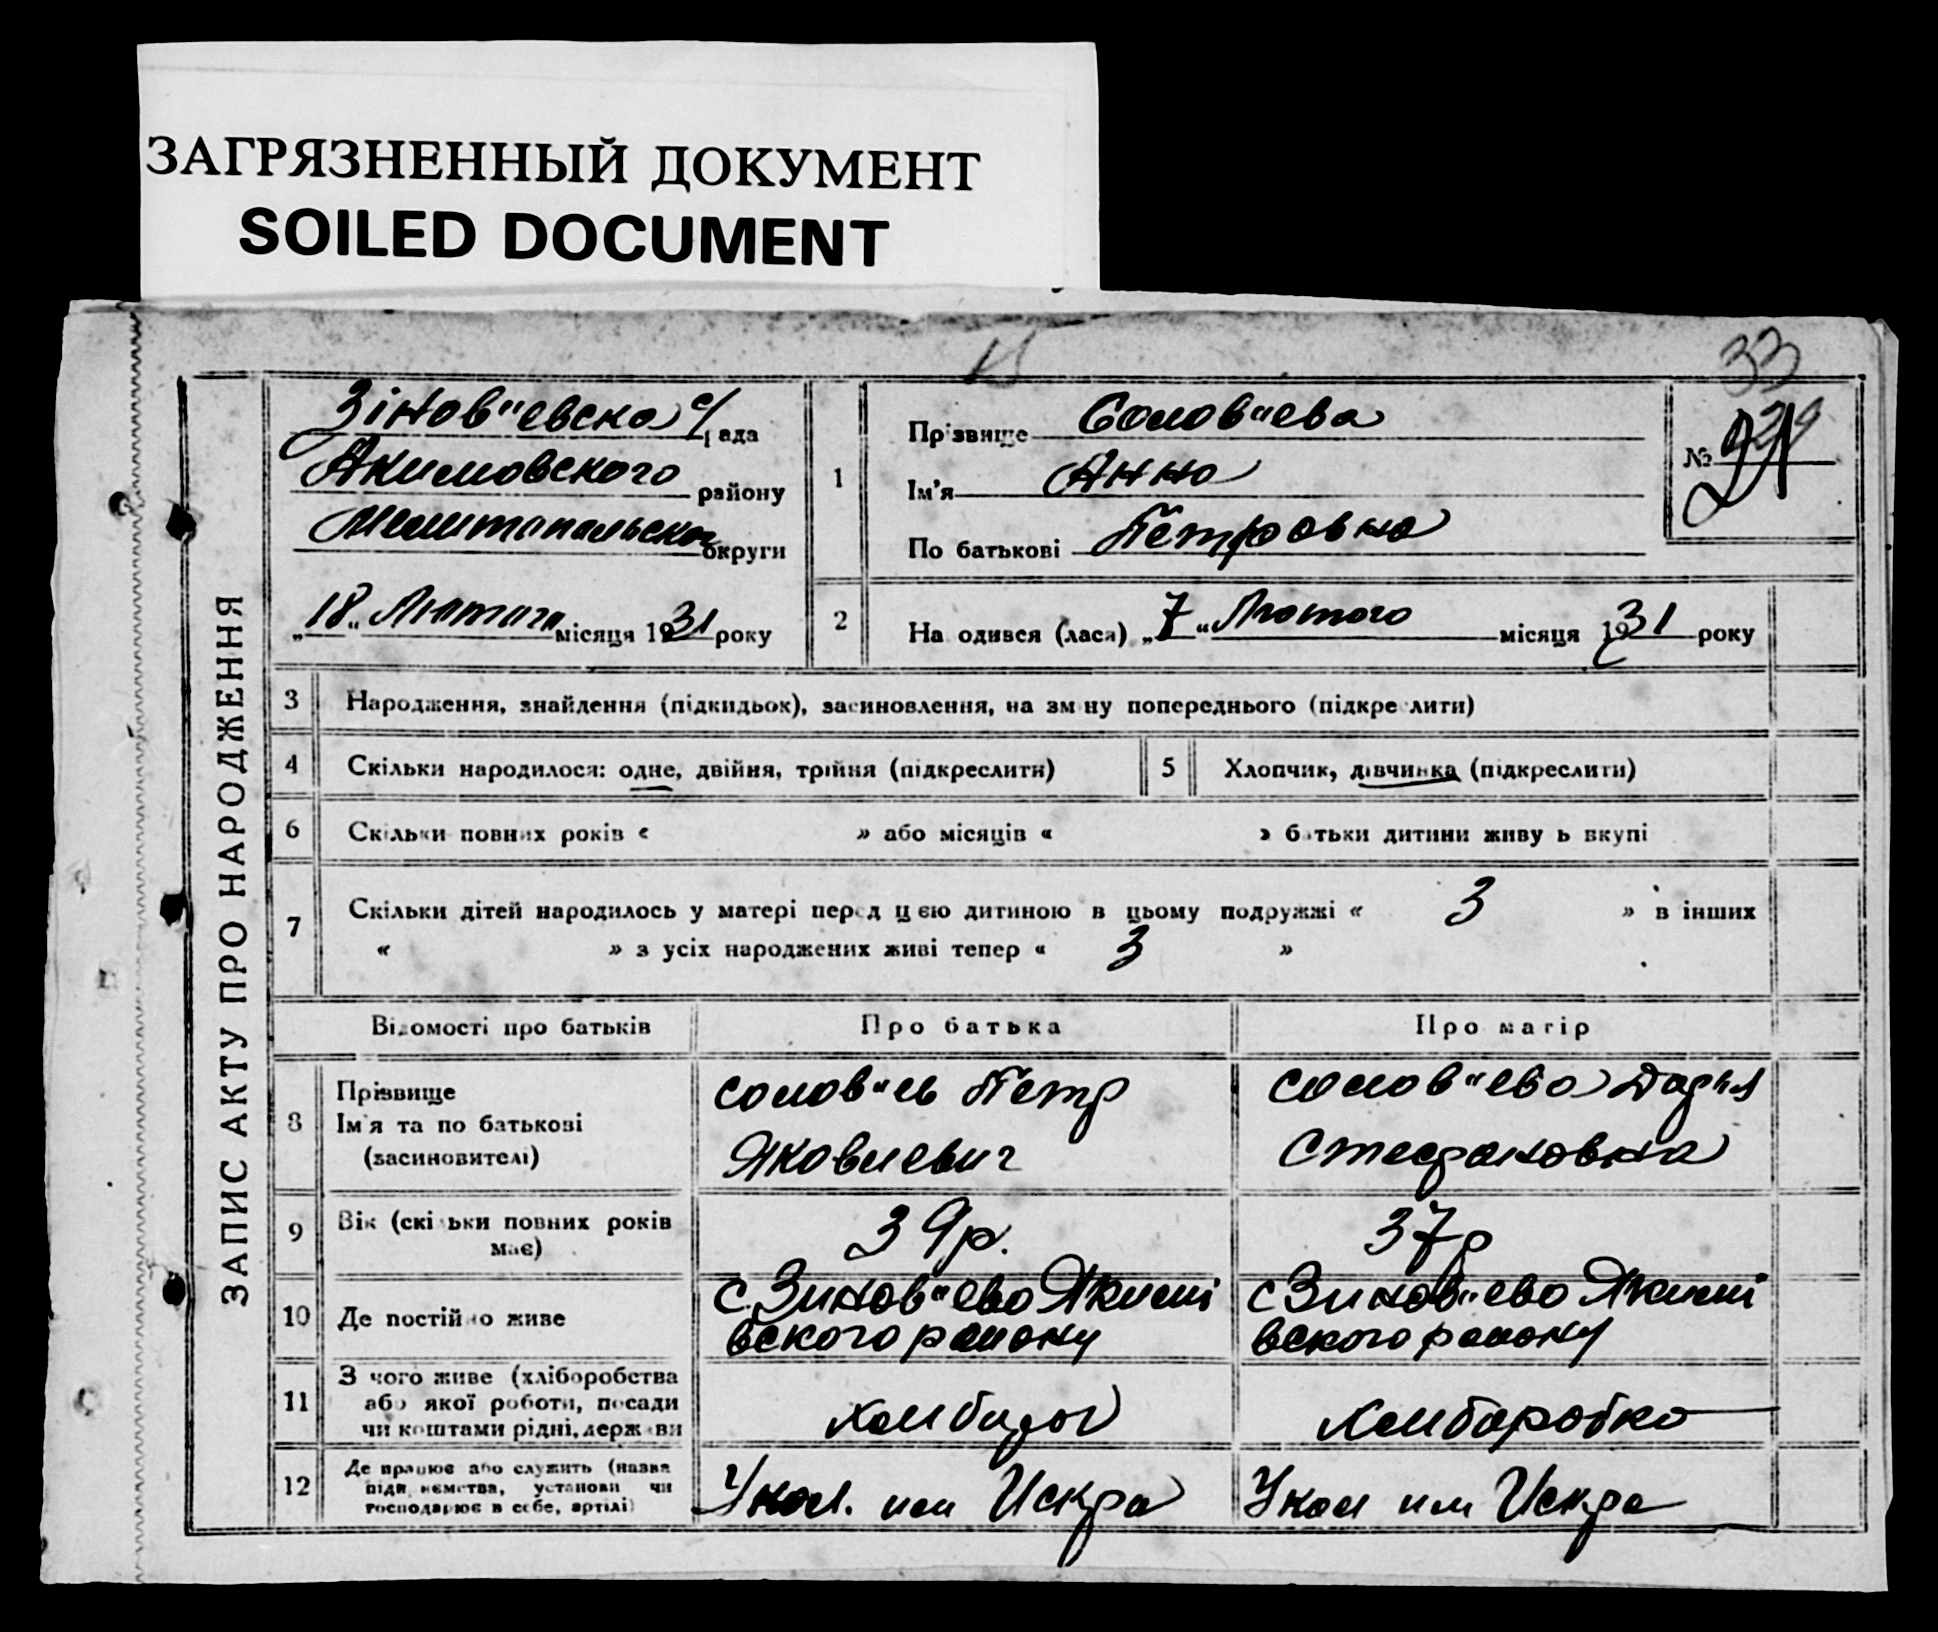 ЗАГРЯЗНЕННЫЙ ДОКУМЕНТ
SOILED DOCUMENT
33
ЗАПИС АКТУ ПРО НАРОДЖЕННЯ
Зінов"евска с/рада
Акимовского району
Мелитопальска округи
„18“ Лютого місяця 1931 року
1
Прізвище Соловьева
Ім'я Анна
По батькові Петровна
№ 21
2 На одився (лася) „7“ Лютого місяця 1931 року
3 Народження, знайдення (підкидьок), засиновлення, на зміну попереднього (підкреслити)
4 Скільки народилося: одне, двійня, трійня (підкреслити)
5 Хлопчик, дівчинка (підкреслити)
6 Скільки повних років « » або місяців « » батьки дитини живуть вкупі
7 Скільки дітей народилось у матері перед цією дитиною в цьому подружжі « 3 » в інших
« » з усіх народжених живі тепер « 3 »
Відомості про батьків Про батька Про матір
8 Прізвище
Ім'я та по батькові
(засиновителі)
Солов"ев Петр
Яковлевич
Солов"ева Дарья
Стефановна
9 Вік (скільки повних років
має)
39р.
37р
10 Де постійно живе
с Зинов"ево Якимі
вского району
с Зинов"ево Якимі
вского району
11 З чого живе (хліборобства
або якої роботи, посади
чи коштами рідні, держави
хлибароб
хлибаробка
12 Де працює або служить (назва
підприємства, установи чи
господарює в себе, артілі)
У кол. им Искра
У кол им Искра